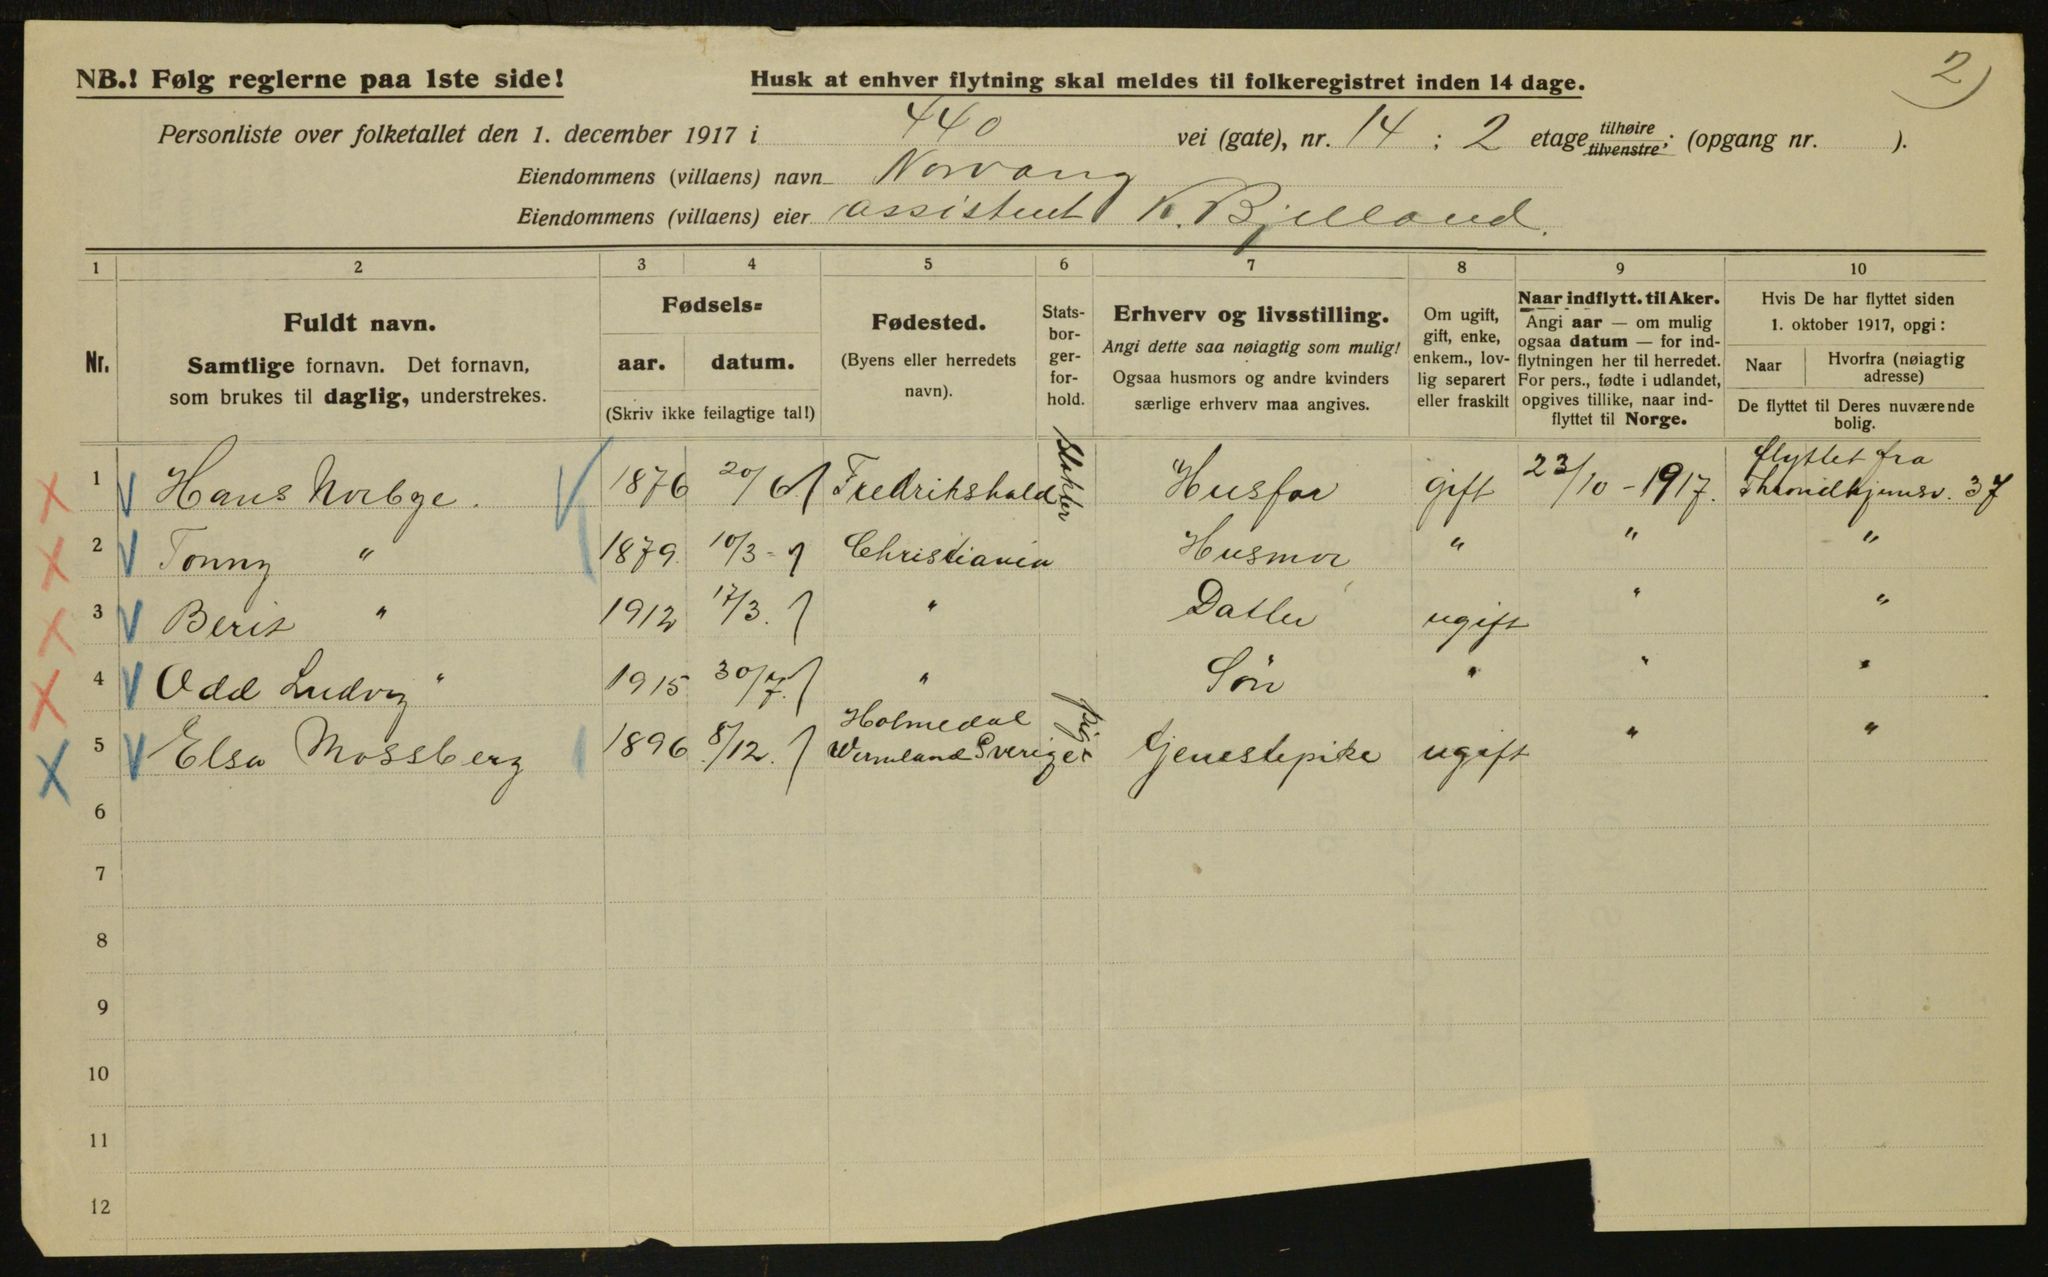 2)
NB.! Følg reglerne paa 1ste side!
Husk at enhver flytning skal meldes til folkeregistret inden 14 dage.
Personliste over folketallet den 1. december 1917 i 440 vei (gate), nr. 14 ; 2 etage tilhøire tilvenstre; (opgang nr. ).
Eiendommens (villaens) navn Norvang
Eiendommens (villaens) eier assistent K. Bjelland.
1 2 3 4 5 6 7 8 9 10
Nr.
Fuldt navn.
Samtlige fornavn. Det fornavn,
som brukes til daglig, understrekes.
Fødsels=
aar. datum.
(Skriv ikke feilagtige tal!)
Fødested.
(Byens eller herredets
navn).
Stats-
bor-
ger-
for-
hold.
Erhverv og livsstilling.
Angi dette saa nøiagtig som mulig!
Ogsaa husmors og andre kvinders
særlige erhverv maa angives.
Om ugift,
gift, enke,
enkem., lov-
lig separert
eller fraskilt
Naar indflytt. til Aker.
Angi aar — om mulig
ogsaa datum — for ind-
flytningen her til herredet.
For pers., fødte i udlandet,
opgives tillike, naar ind-
flyttet til Norge.
Hvis De har flyttet siden
1. oktober 1917, opgi:
Naar
Hvorfra (nøiagtig
adresse)
De flyttet til Deres nuværende
bolig.
1 Hans Norbye. 1876 20/6 Fredrikshald Husfar gift 23/10 - 1917. flyttet fra Throndhjemsv. 37
2 Tonny " 1879. 10/3 - Christiania Husmor " " "
3 Berit " 1912 17/3. " Datter ugift " "
4 Odd Ludvig " 1915 30/7. " Søn " " "
5 Elsa Mossberg 1896 8/12. Holmedal Wermland Sverige Tjenestepike ugift " "
6
7
8
9
10
11
12